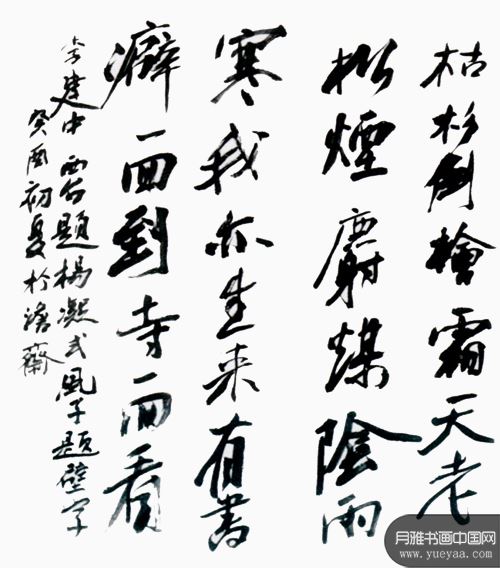 枯杉倒檜霜天老
松煙麝煤陰雨
寒我亦生来有書
癖一回到寺一回看
李建中西台題楊凝式風子題壁字
癸酉初夏於澹齋
月雅书画中国网
www.yueyaa.com